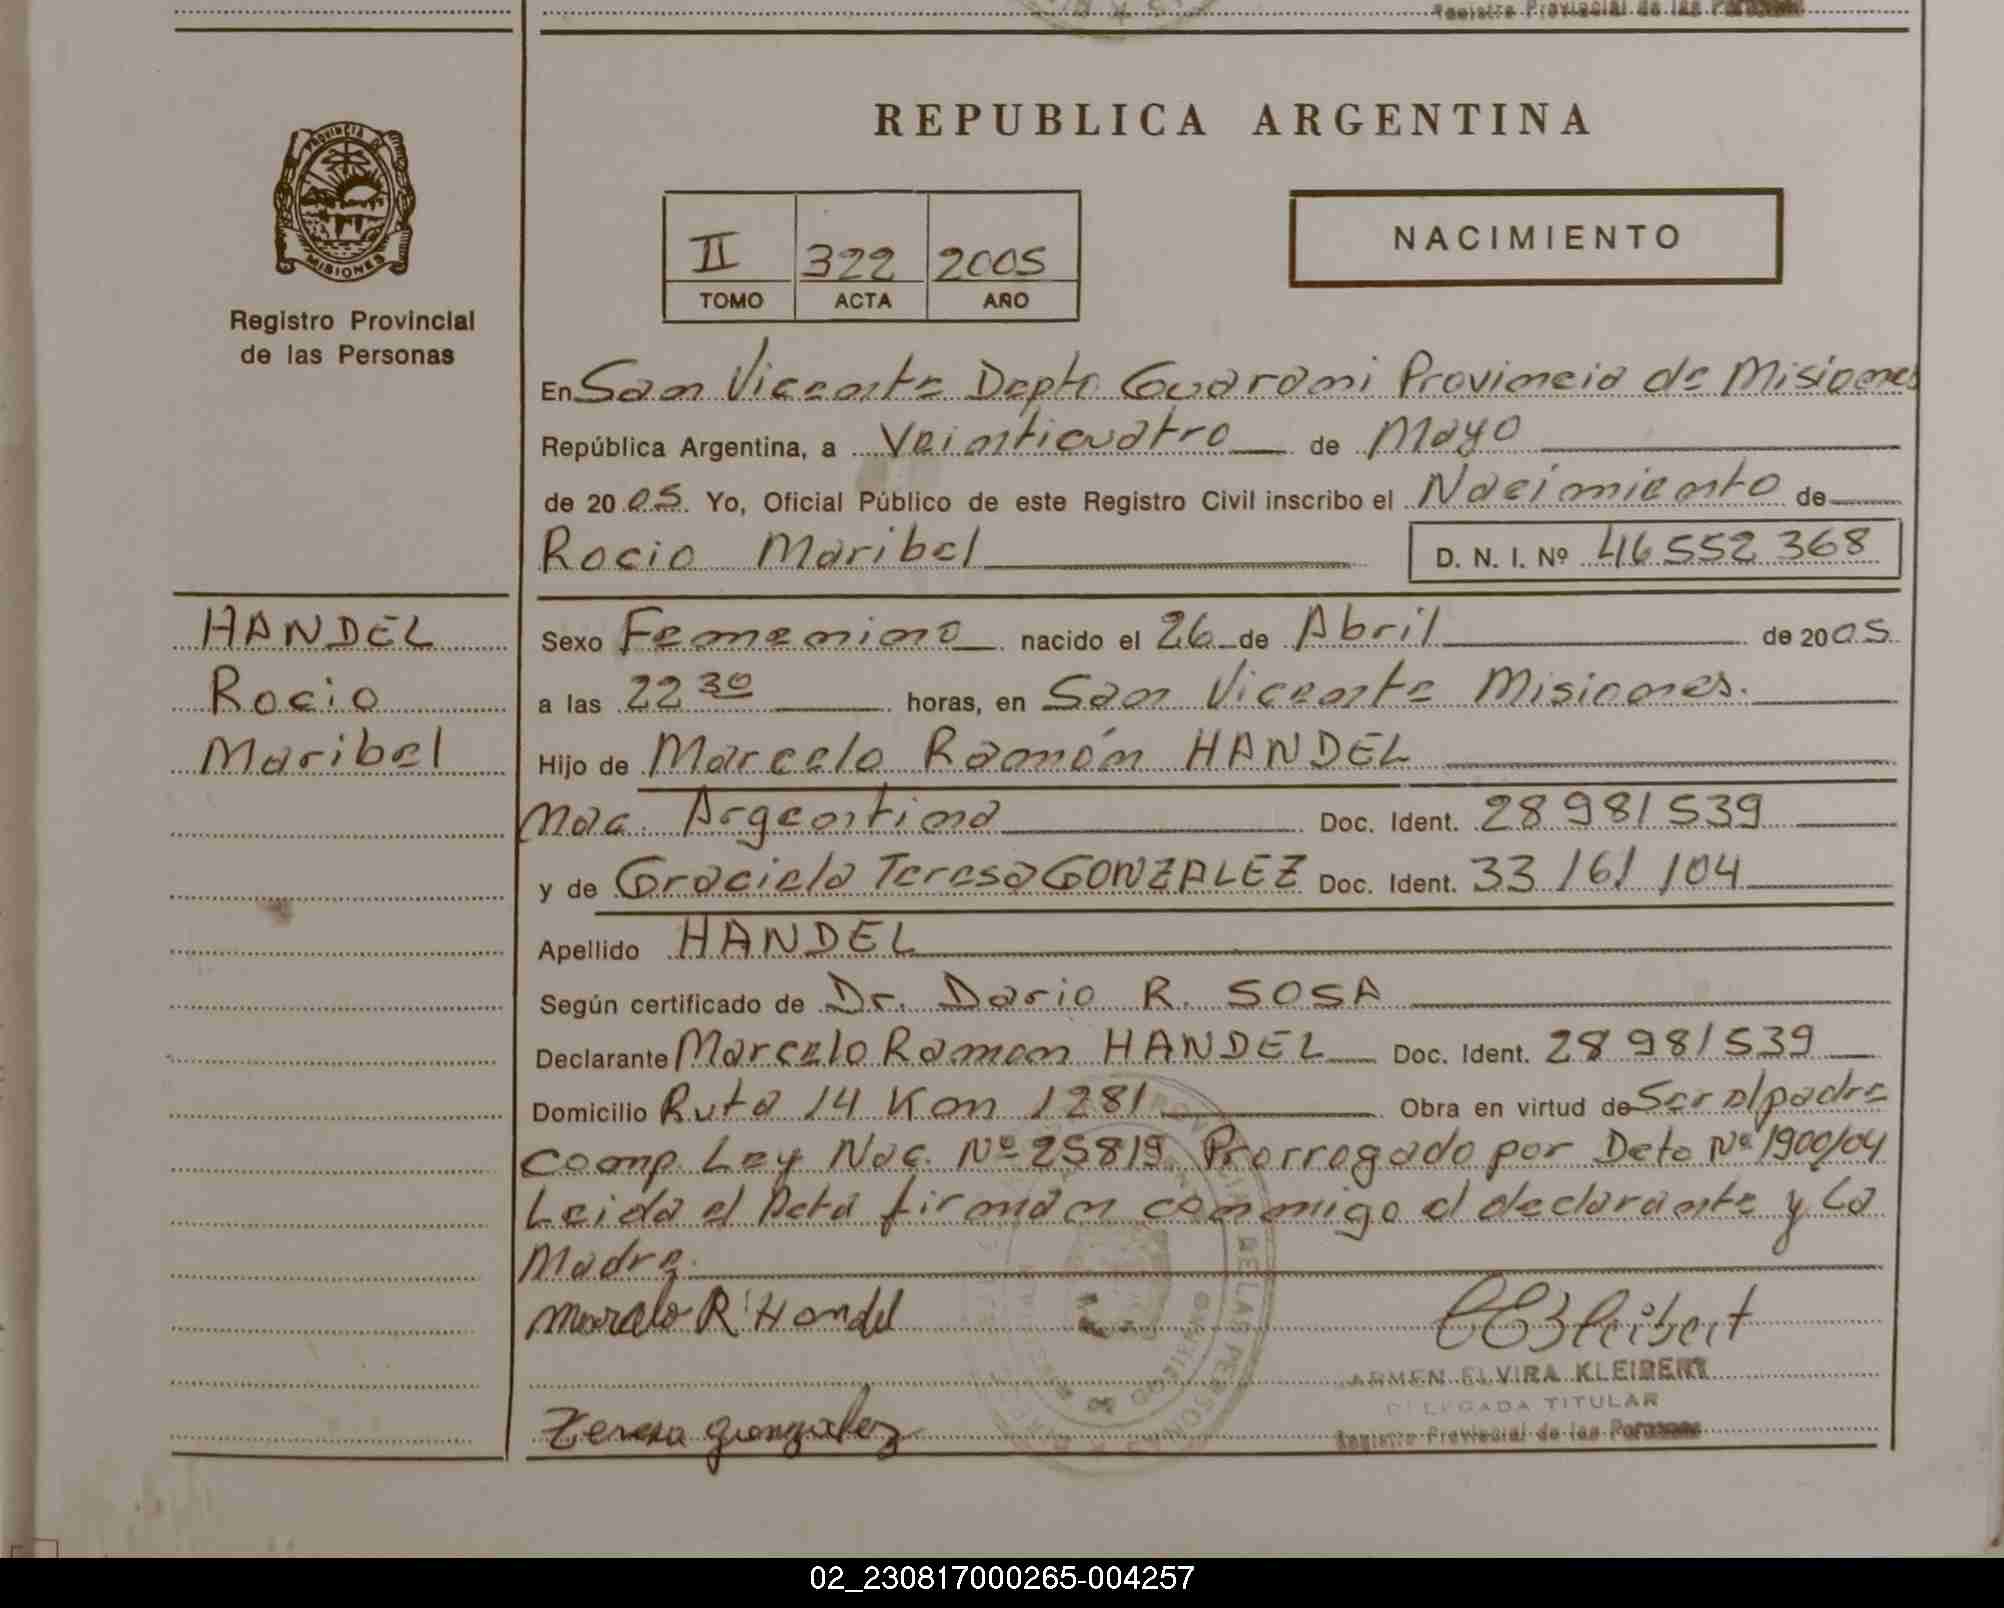 Registro Provincial de las Personas
REPUBLICA ARGENTINA
PROVINCIA DE
MISIONES
Registro Provincial
de las Personas
II 322 2005
TOMO ACTA AÑO
NACIMIENTO
En San Vicente Depto Guarani Provincia de Misiones
República Argentina, a Veinticuatro de Mayo
de 2005. Yo, Oficial Público de este Registro Civil inscribo el Nacimiento de
Rocio Maribel D. N. I. Nº 46 552 368
HANDEL
Rocio
Maribel
Sexo Femenino nacido el 26 de Abril de 2005
a las 22 30 horas, en San Vicente Misiones.
Hijo de Marcelo Ramón HANDEL
Nac. Argentina Doc. Ident. 28 981 539
y de Graciela Teresa GONZALEZ Doc. Ident. 33 161 104
Apellido HANDEL
Según certificado de Dr. Dario R. SOSA
Declarante Marcelo Ramon HANDEL Doc. Ident. 28 981 539
Domicilio Ruta 14 Km 1281 Obra en virtud de Ser el padre
Comp. Ley Nac. Nº 25819 Prorrogado por Dcto Nº 1900/04
Leida el Acta firman conmigo el declarante y La
Madre.
Marcelo R Handel
Teresa gonzalez
ARMEN ELVIRA KLEIBERT
DELEGADA TITULAR
Registro Provincial de las Personas
02_230817000265-004257